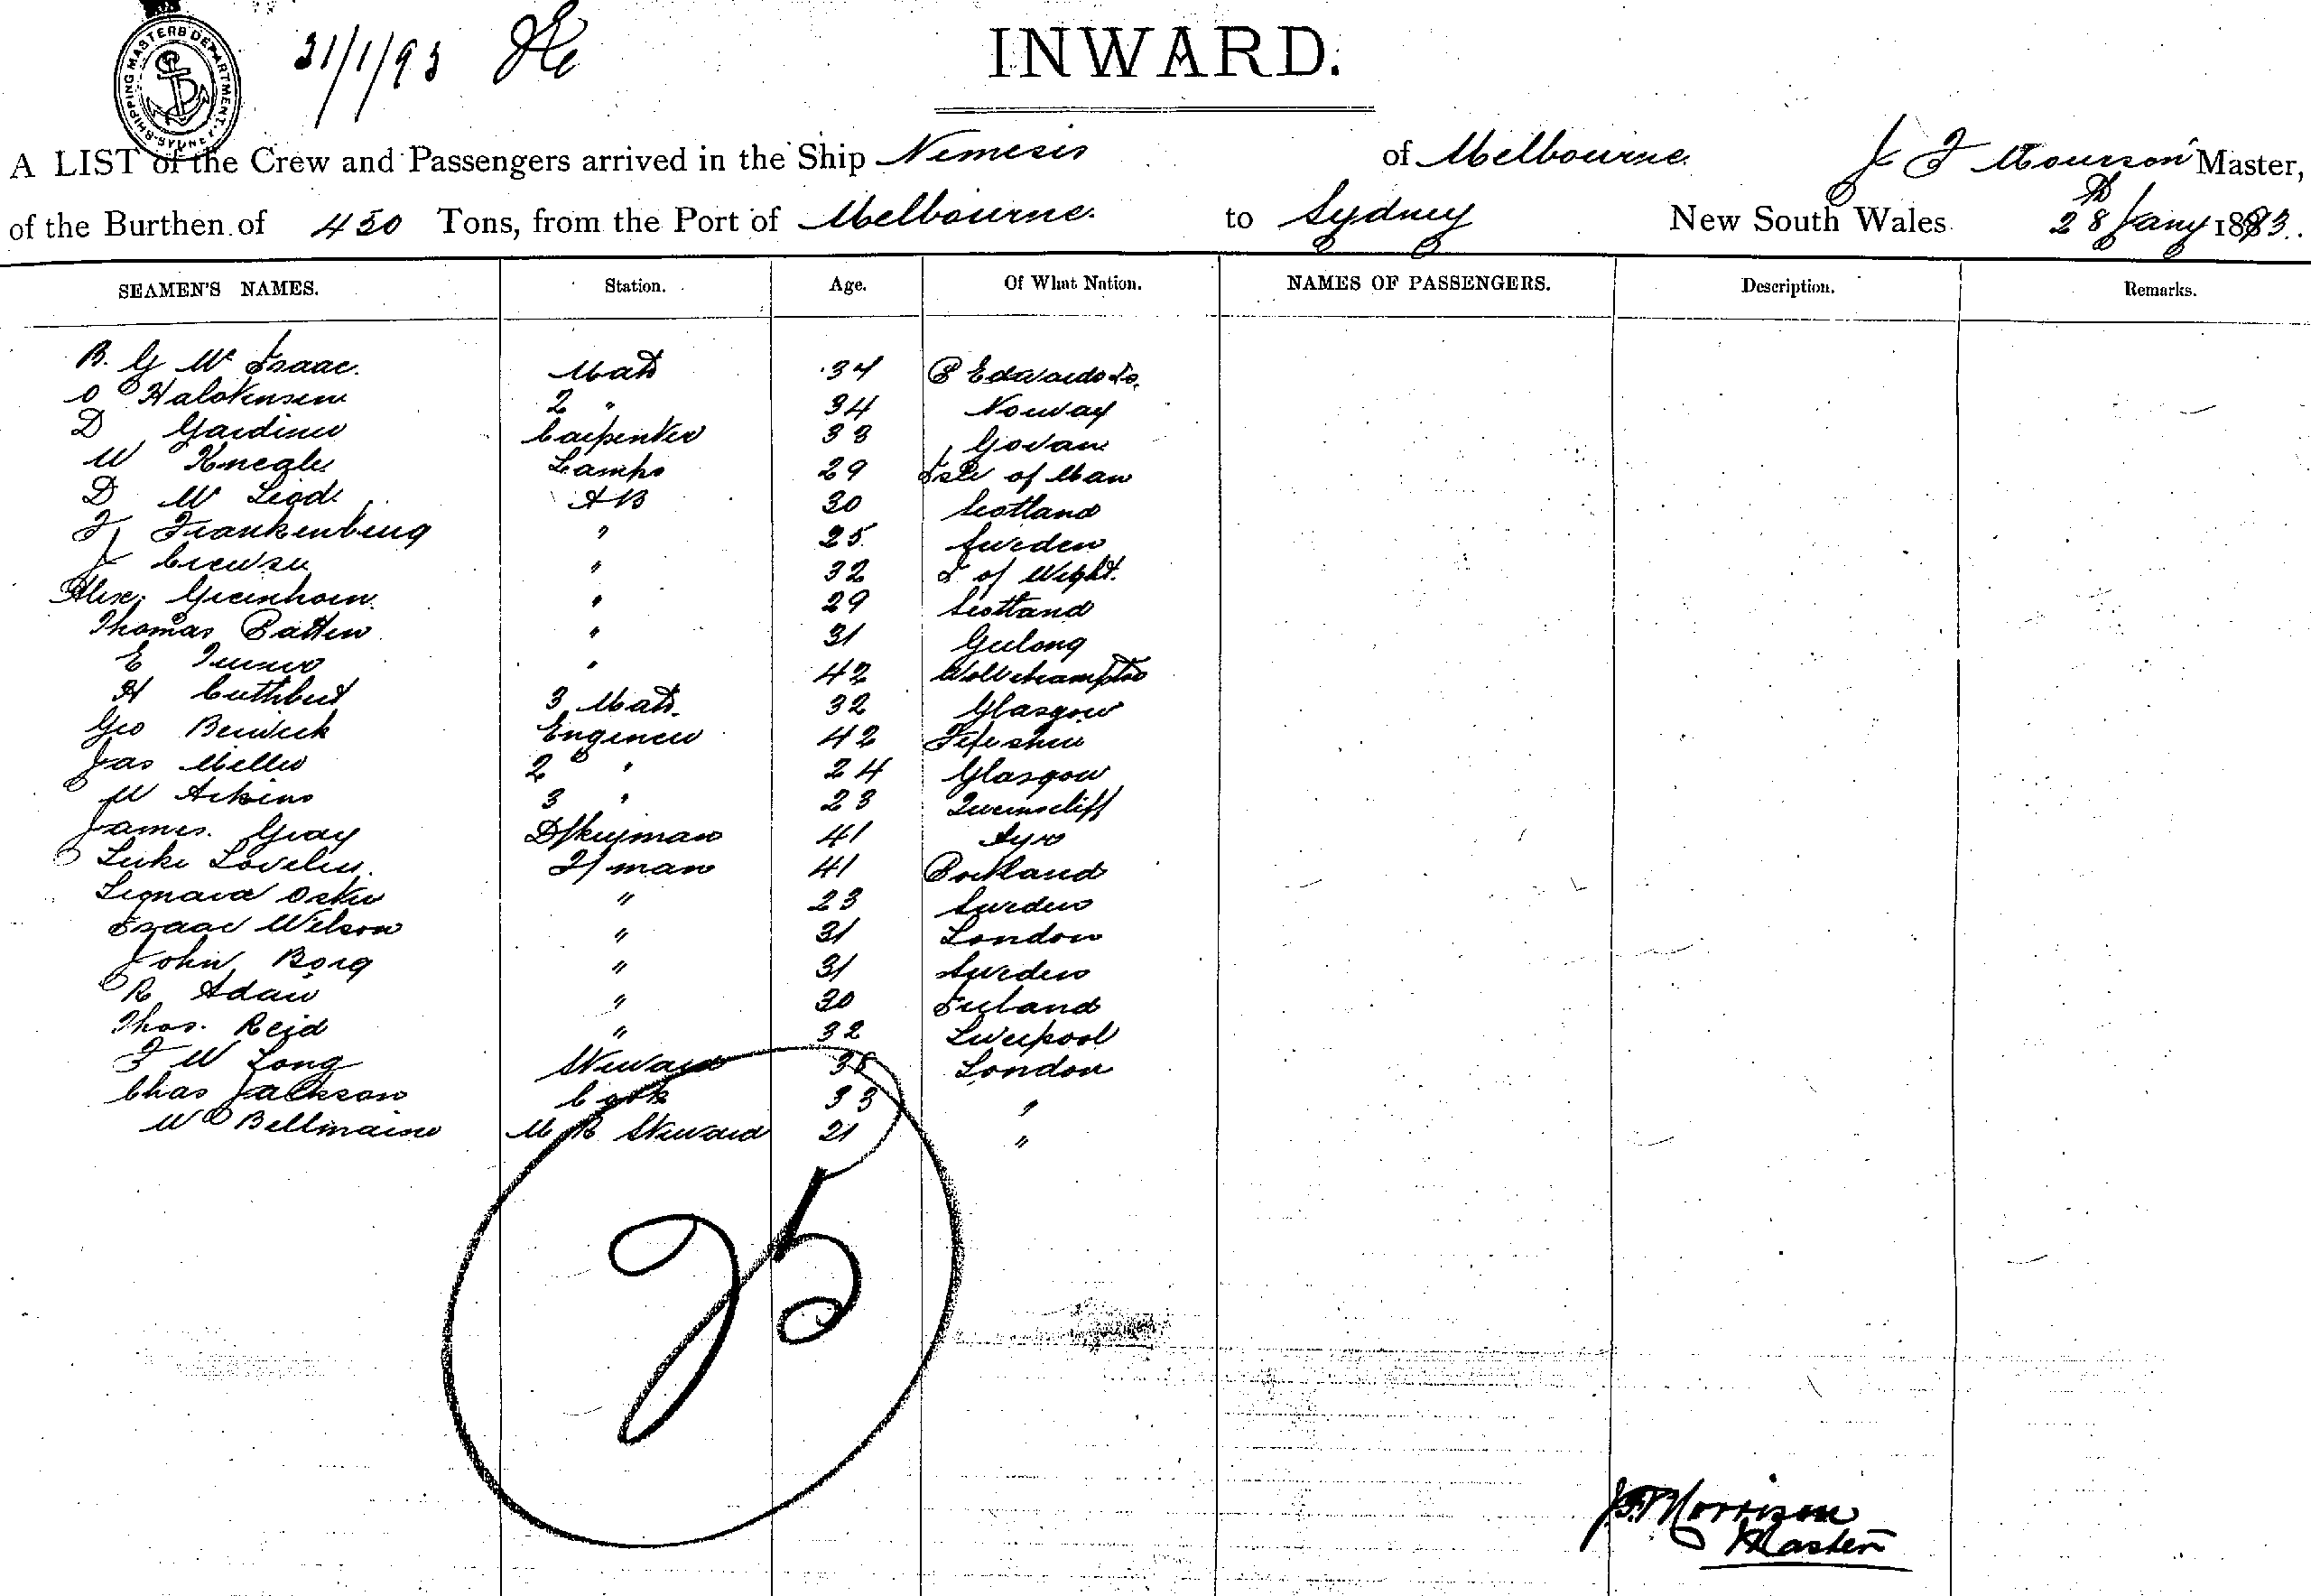 SHIPPING MASTERS DEPARTMENT SYDNEY
31/1/93
INWARD.
A LIST of the Crew and Passengers arrived in the Ship Nemesis of Melbourne J F Morrison Master,
of the Burthen of 450 Tons, from the Port of Melbourne to Sydney New South Wales 28 Jany 1893.
SEAMEN'S NAMES. Station. Age. Of What Nation. NAMES OF PASSENGERS. Description. Remarks.
B. G W Isaac. Mate 34 P Edwards Is.
O Halvkensen 2 " 34 Norway
D Gardiner Carpenter 33 Govan
W Kneale Lamps 29 Isle of Man
D McLeod AB 30 Scotland
F Frankenberg " 25 Sweden
J Crewse " 32 I of Wight.
Alex. Greenhorn " 29 Scotland
Thomas Patten " 31 Geelong
E Turner " 42 Wolverhampton
H Cuthbert 3 Mate 32 Glasgow
Geo Berwick Engineer 42 Fifeshire
Jas Miller 2 " 24 Glasgow
W Aikins 3 " 23 Queenscliff
James Gray Dkeyman 41 Ayr
Luke Loveless F/man 41 Portland
Leonard Oster " 23 Sweden
Isaac Wilson " 31 London
John Borg " 31 Sweden
R Adair " 30 Ireland
Thos. Reid " 32 Liverpool
F W Long Steward 38 London
Chas Jackson Cook 33 "
W Bellmaine M R Steward 21 "
25
J.F. Morrison
Master